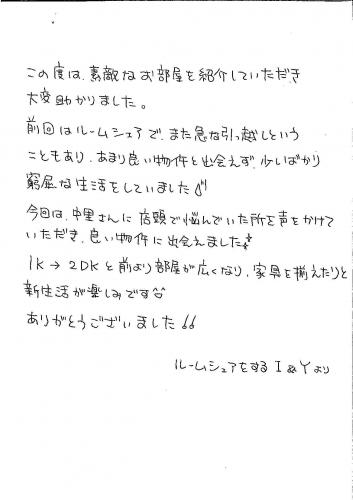 この度は、素敵なお部屋を紹介していただき
大変助かりました。
前回はルームシェアで、また急な引っ越しという
こともあり、あまり良い物件と出会えず、少しばかり
窮屈な生活をしていました
今回は、中里さんに店頭で悩んでいた所を声をかけて
いただき、良い物件に出会えました
1K→2DKと前より部屋が広くなり、家具を揃えたりと
新生活が楽しみです^^
ありがとうございました!!
ルームシェアをする I & Y より